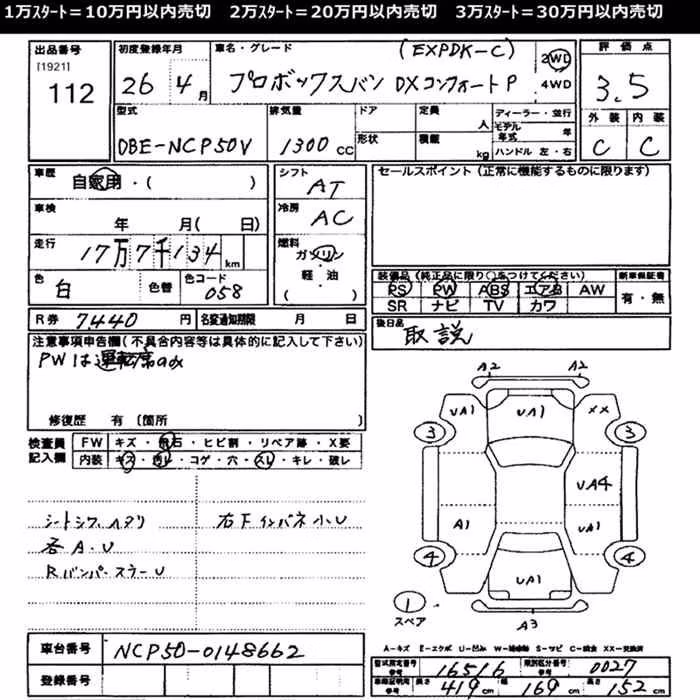 1万ｽﾀｰﾄ＝10万円以内売切　2万ｽﾀｰﾄ＝20万円以内売切　3万ｽﾀｰﾄ＝30万円以内売切
出品番号
[1921]
112
初度登録年月
26 4月
車名・グレード
(EXPDK-C)
プロボックスバン DXコンフォートP
2WD
4WD
評価点
3.5
外装 内装
C C
型式
DBE-NCP50V
排気量
1300 CC
ドア
形状
定員
人
積載
kg
ディーラー・並行
モデル年式 年
ハンドル 左・右
車歴
自家用・( )
車検
年 月( 日)
走行
17万7千134km
色
白
色替
色コード
058
シフト
AT
冷房
AC
燃料
ガソリン
軽・油
( )
セールスポイント (正常に機能するものに限ります)
装備品(純正品に限り○をつけてください)
PS PW ABS エアB AW
SR ナビ TV カワ
新車保証書
有・無
R券 7440 円
名変通知期限 月 日
後日品
取説
注意事項申告欄(不具合内容等は具体的に記入して下さい)
PWは運転席のみ
修復歴 有 〔箇所 〕
検査員記入欄
FW キズ・飛石・ヒビ割・リペア跡・X要
内装 キズ・汚レ・コゲ・穴・スレ・キレ・破レ
各A・U
Rバンパースラー U
右下インパネ小U
A2 A2
UA1 UA1 XX
3 3
UA4
A1 UA1
4 4
UA1
1
スペア
A3
A-キズ E-エクボ U-凹み W-補修跡 S-サビ C-腐食 XX-交換済
車台番号
NCP50-0148662
登録番号
型式指定番号 参考 16516
類別区分番号 参考 0027
車検証明示 参考 長さ 419cm 幅 169cm 高さ 152cm